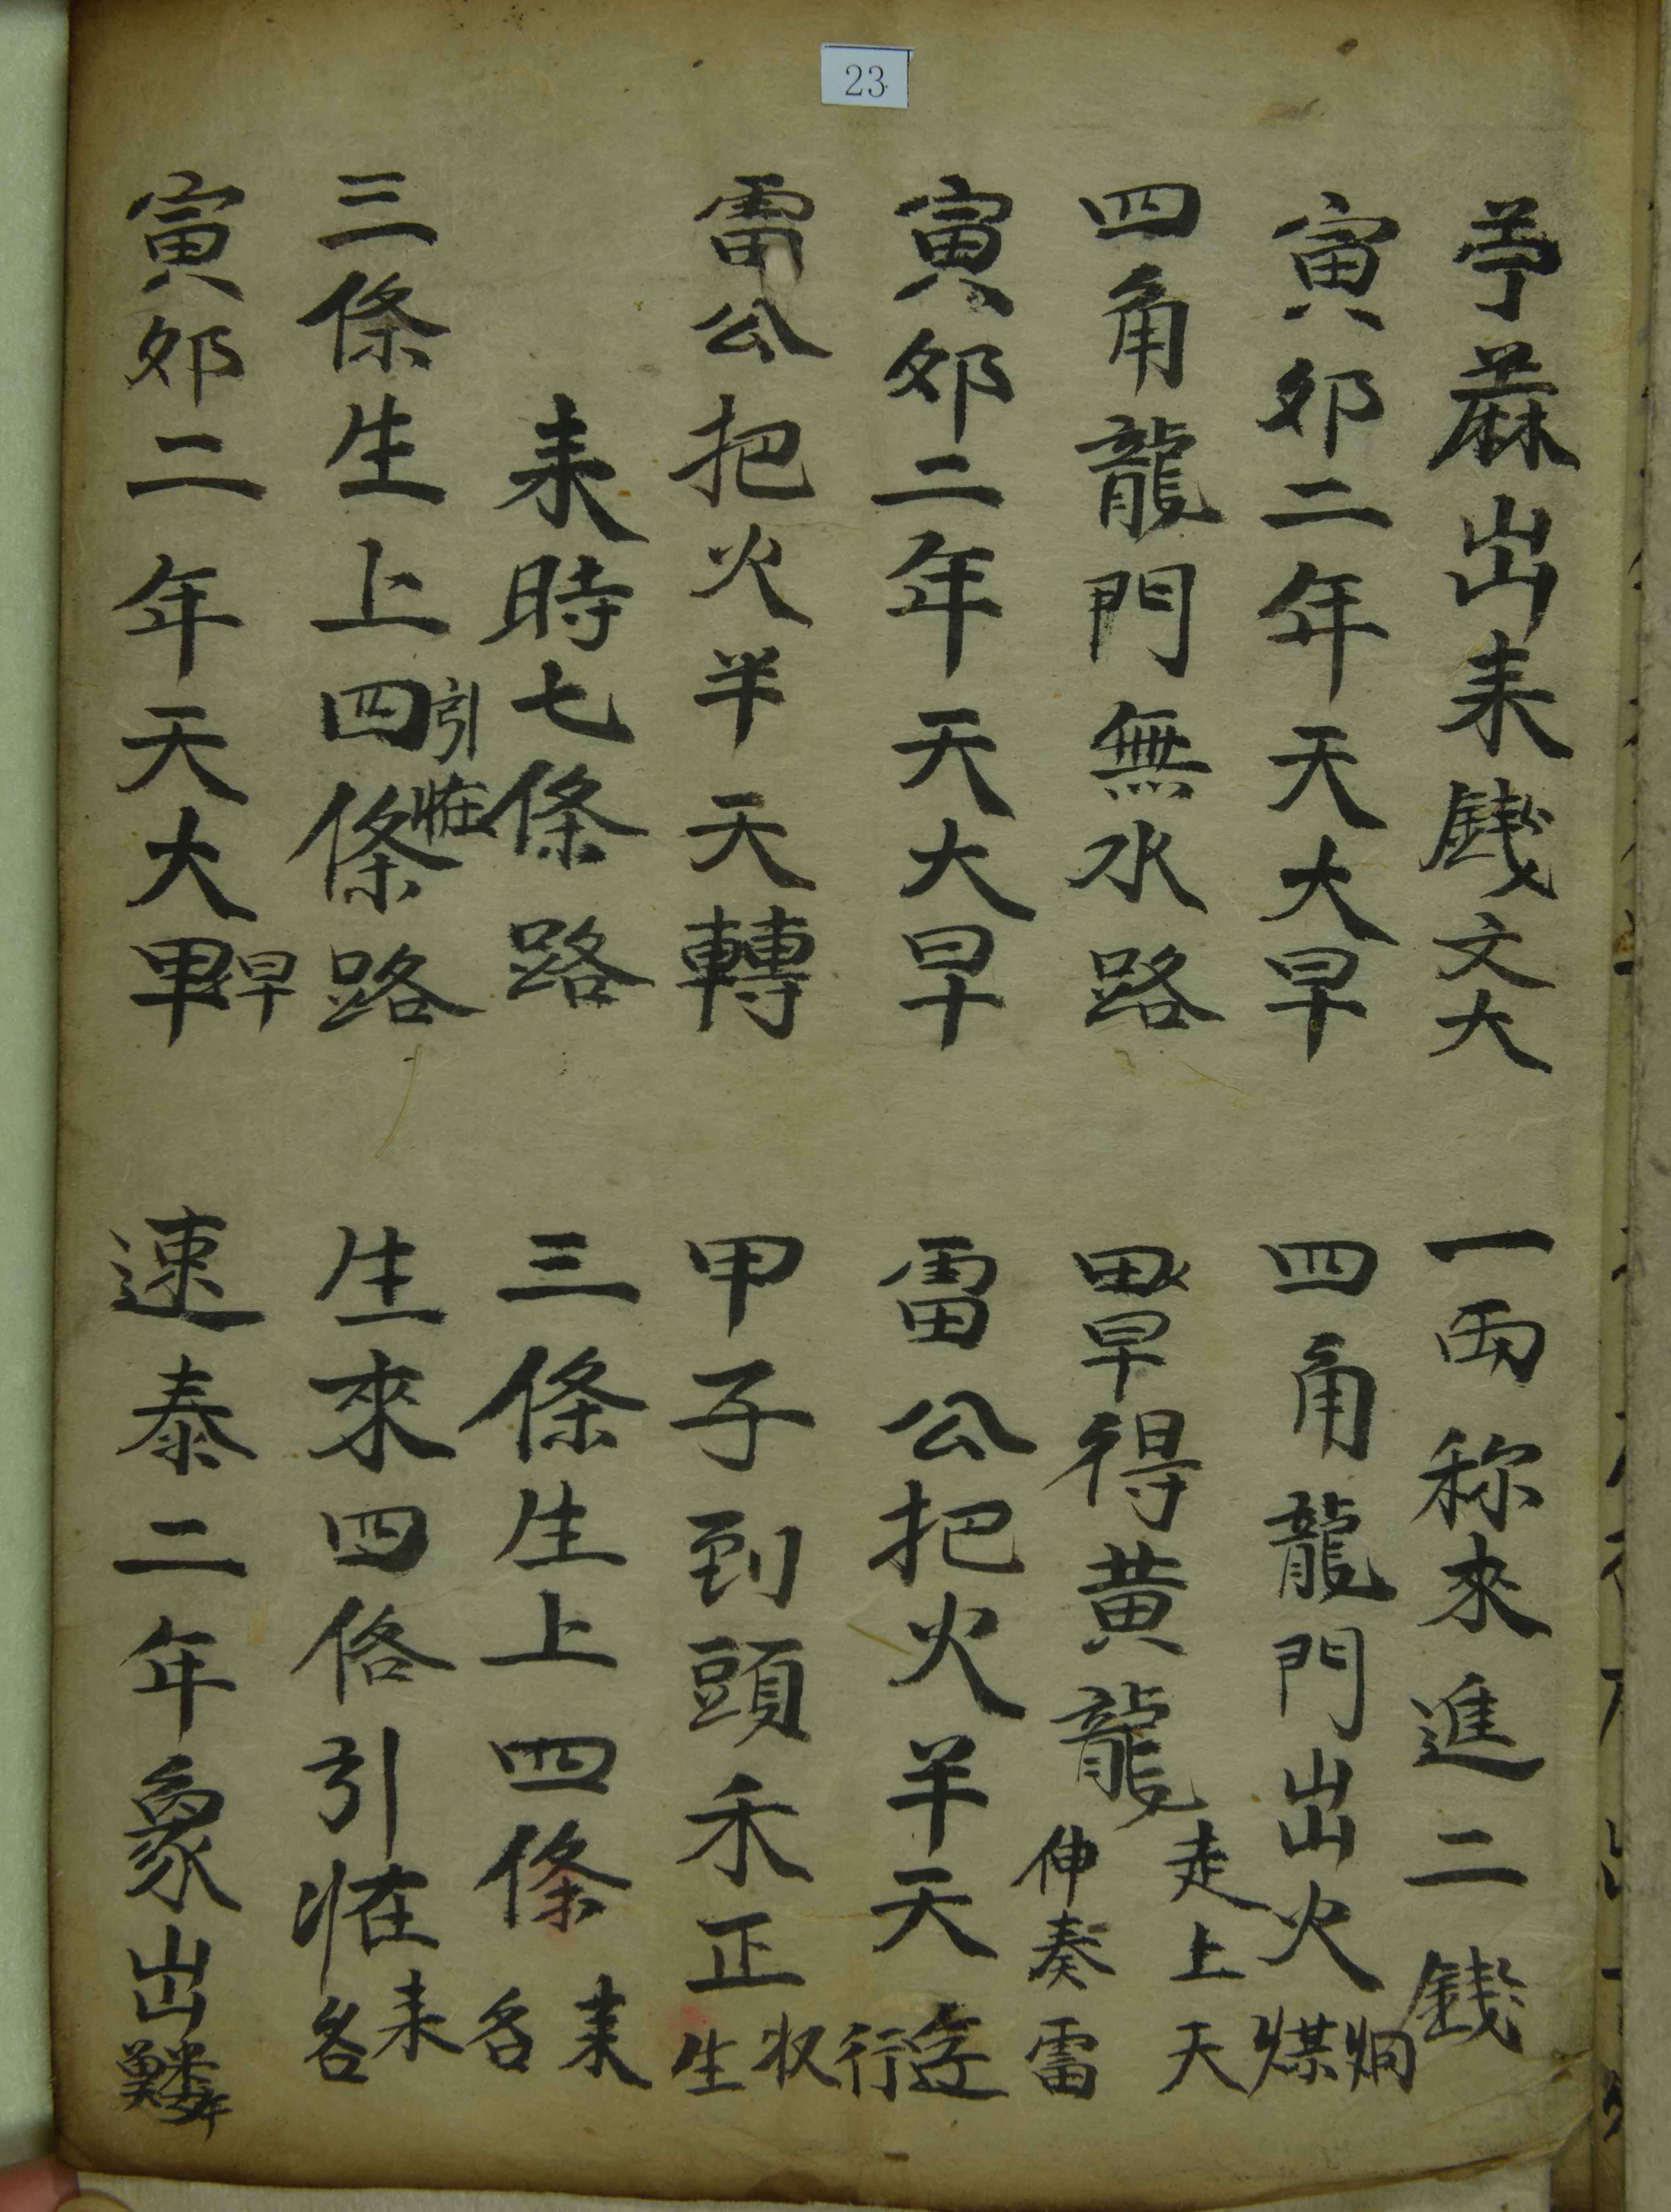 23
苧蔴出来錢文大
一両称來進二錢
寅夘二年天大旱
四角龍門出火煤烟
四角龍門無水路
旱得黄龍走上天伸奏雷
寅夘二年天大旱
雷公把火半天行
雷公把火半天轉
甲子到頭禾正收生
来時七條路
三條生上四條来名
三條生上四條路引㤓
生來四佫引㤓来各
寅夘二年天大旱
速泰二年象出